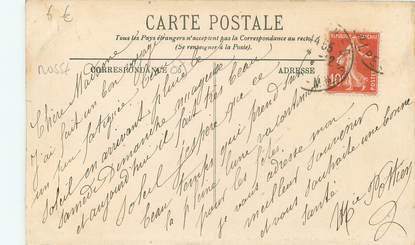 6 €
CARTE POSTALE
Tous les Pays étrangers n'acceptent pas la Correspondance au recto
(Se renseigner à la Poste).
CORRESPONDANCE
ADRESSE
Chère Madame
J'ai fait un bon voyage
un peu fatiguée
soleil en arrivant
samedi Dimanche
et aujourd'hui il fait très beau
soleil j'espère que ce
beau temps qui prend sur
la pleine lune
pour les fêtes.
je vous adresse mon
meilleur souvenir
et vous souhaite une bonne
santé
POSTES
10